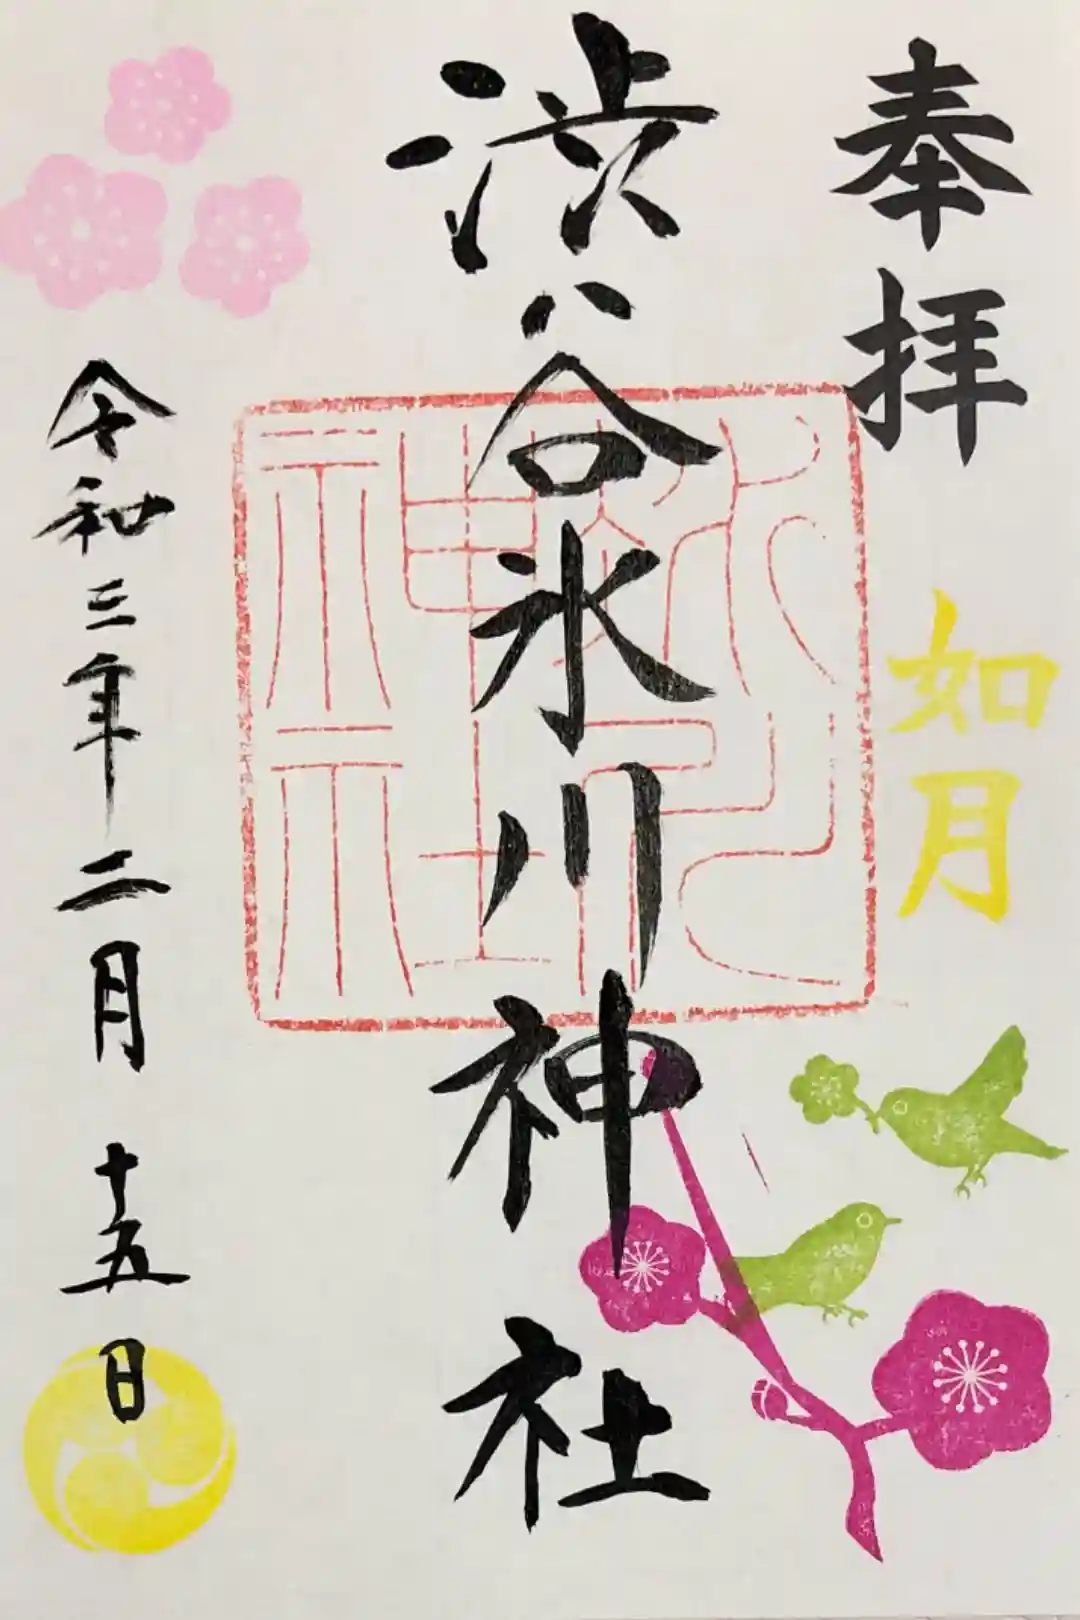 奉拝
如月
渋谷氷川神社
氷川神社
令和三年二月十五日